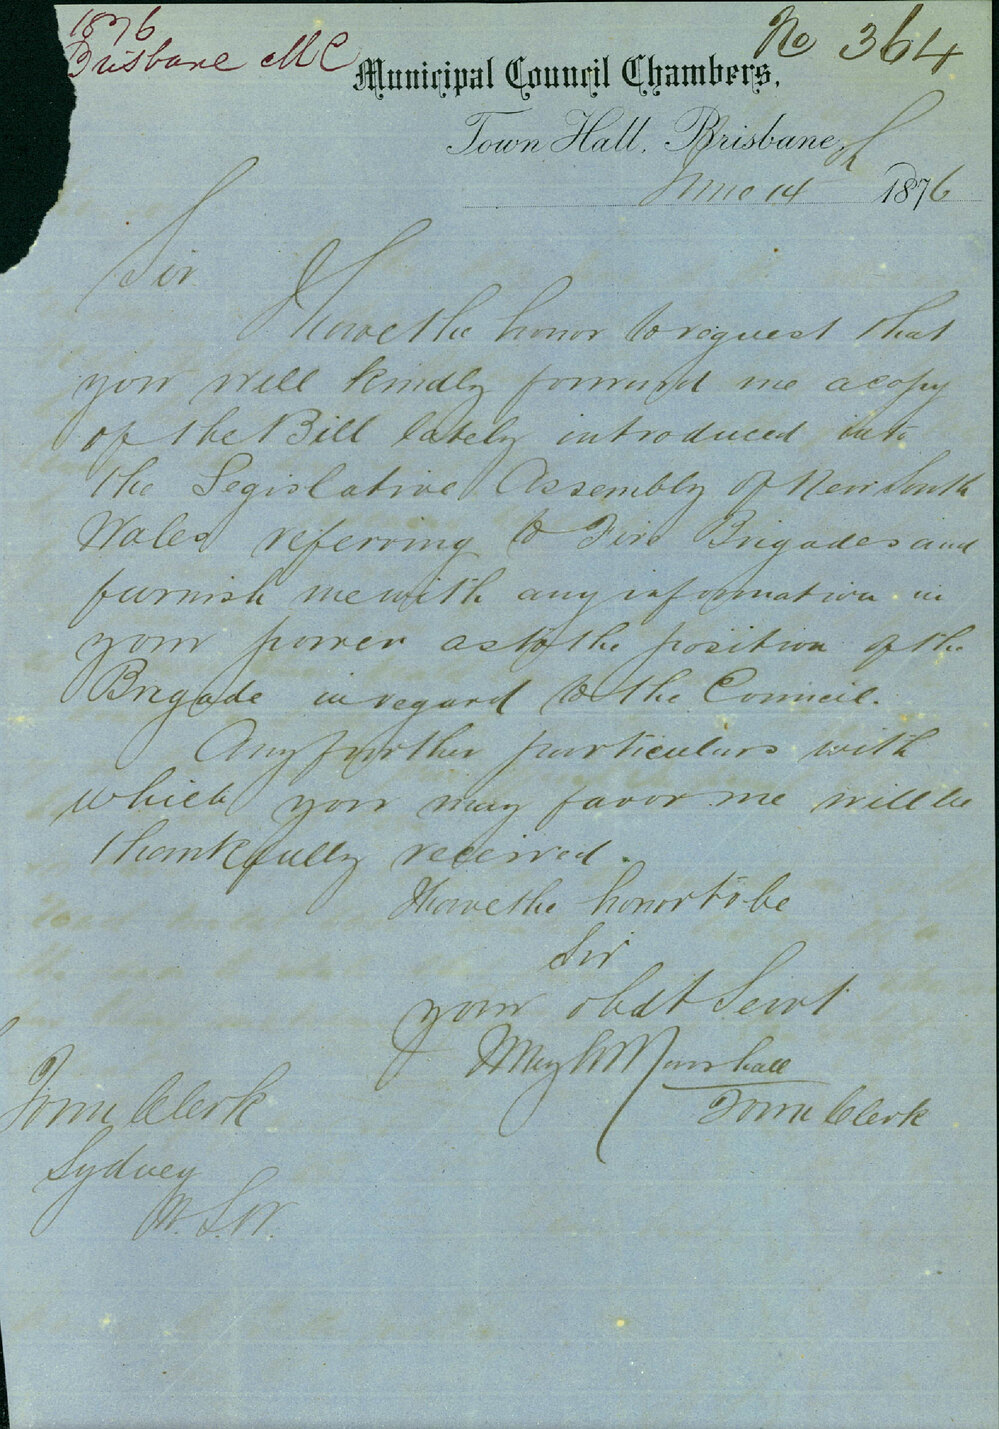 1876
Brisbane MC
No 364
Municipal Council Chambers,
Town Hall, Brisbane,
June 14th 1876
Sir
I have the honor to request that
you will kindly forward me a copy
of the Bill lately introduced into
the Legislative Assembly of New South
Wales referring to Fire Brigades and
furnish me with any information in
your power as to the position of the
Brigade in regard to the Council.
Any further particulars with
which you may favor me will be
thankfully received.
I have the honor to be
Sir
your obdt Servt
Marshall
Town Clerk
Town Clerk
Sydney
N.S.W.